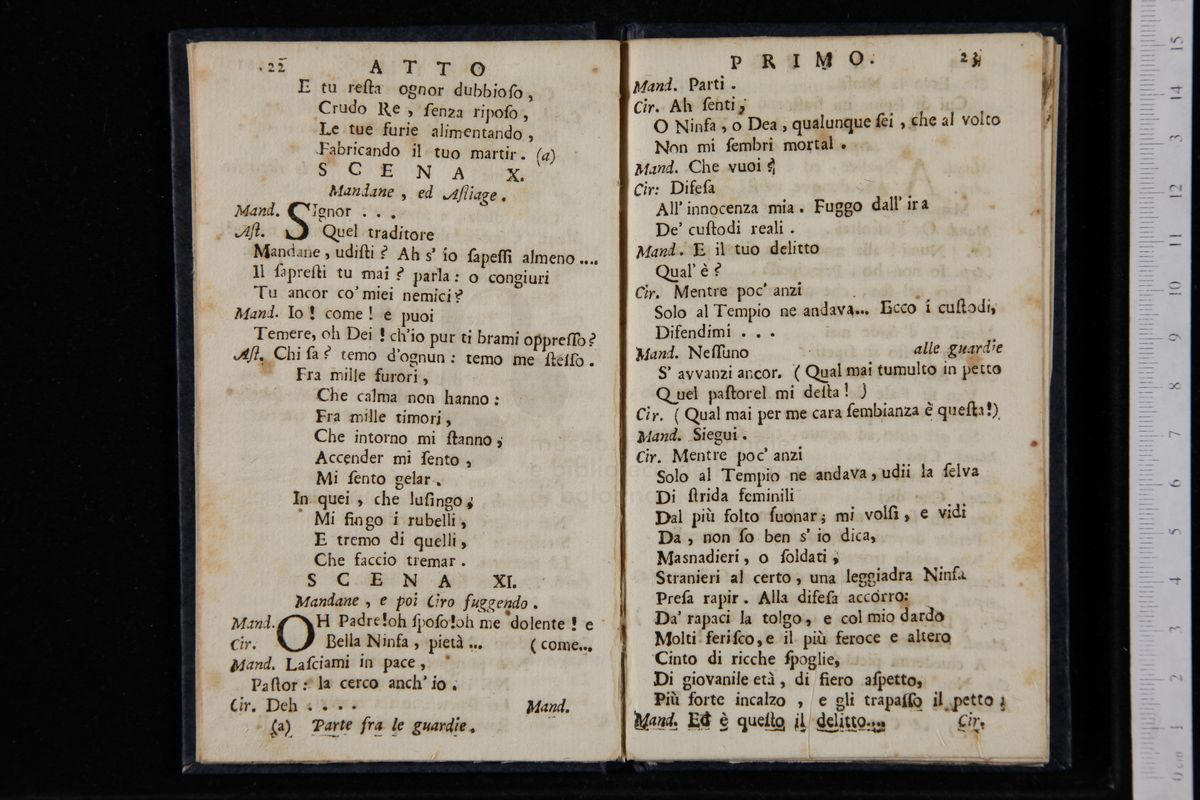 22 ATTO
E tu reſta ognor dubbioſo,
Crudo Re, ſenza ripoſo,
Le tue furie alimentando,
Fabricando il tuo martir. (a)
SCENA X.
Mandane, ed Aſtiage.
Mand. SIgnor . . .
Aſt. Quel traditore
Mandane, udiſti? Ah s' io ſapeſſi almeno ....
Il ſapreſti tu mai? parla: o congiuri
Tu ancor co' miei nemici?
Mand. Io! come! e puoi
Temere, oh Dei! ch'io pur ti brami oppreſſo?
Aſt. Chi ſa? temo d'ognun: temo me ſteſſo.
Fra mille furori,
Che calma non hanno:
Fra mille timori,
Che intorno mi ſtanno,
Accender mi ſento,
Mi ſento gelar.
In quei, che luſingo;
Mi fingo i rubelli,
E tremo di quelli,
Che faccio tremar.
SCENA XI.
Mandane, e poi Ciro fuggendo.
Mand. OH Padre! oh ſpoſo! oh me dolente! e
Cir. Bella Ninfa, pietà ... (come...
Mand. Laſciami in pace,
Paſtor: la cerco anch' io.
Cir. Deh . . . . Mand.
(a) Parte fra le guardie.
PRIMO. 23
Mand. Parti.
Cir. Ah ſenti;
O Ninfa, o Dea, qualunque ſei, che al volto
Non mi ſembri mortal.
Mand. Che vuoi?
Cir: Difeſa
All' innocenza mia. Fuggo dall' ira
De' cuſtodi reali.
Mand. E il tuo delitto
Qual' è?
Cir. Mentre poc' anzi
Solo al Tempio ne andava... Ecco i cuſtodi,
Difendimi . . .
Mand. Neſſuno alle guardie
S' avvanzi ancor. (Qual mai tumulto in petto
Quel paſtorel mi deſta!)
Cir. (Qual mai per me cara ſembianza è queſta!)
Mand. Siegui.
Cir. Mentre poc' anzi
Solo al Tempio ne andava, udii la ſelva
Di ſtrida feminili
Dal più folto ſuonar; mi volſi, e vidi
Da, non ſo ben s' io dica,
Masnadieri, o ſoldati,
Stranieri al certo, una leggiadra Ninfa
Preſa rapir. Alla difeſa accorro:
Da' rapaci la tolgo, e col mio dardo
Molti feriſco, e il più feroce e altero
Cinto di ricche ſpoglie,
Di giovanile età, di fiero aſpetto,
Più forte incalzo, e gli trapaſſo il petto;
Mand. Ed è queſto il delitto.... Cir.